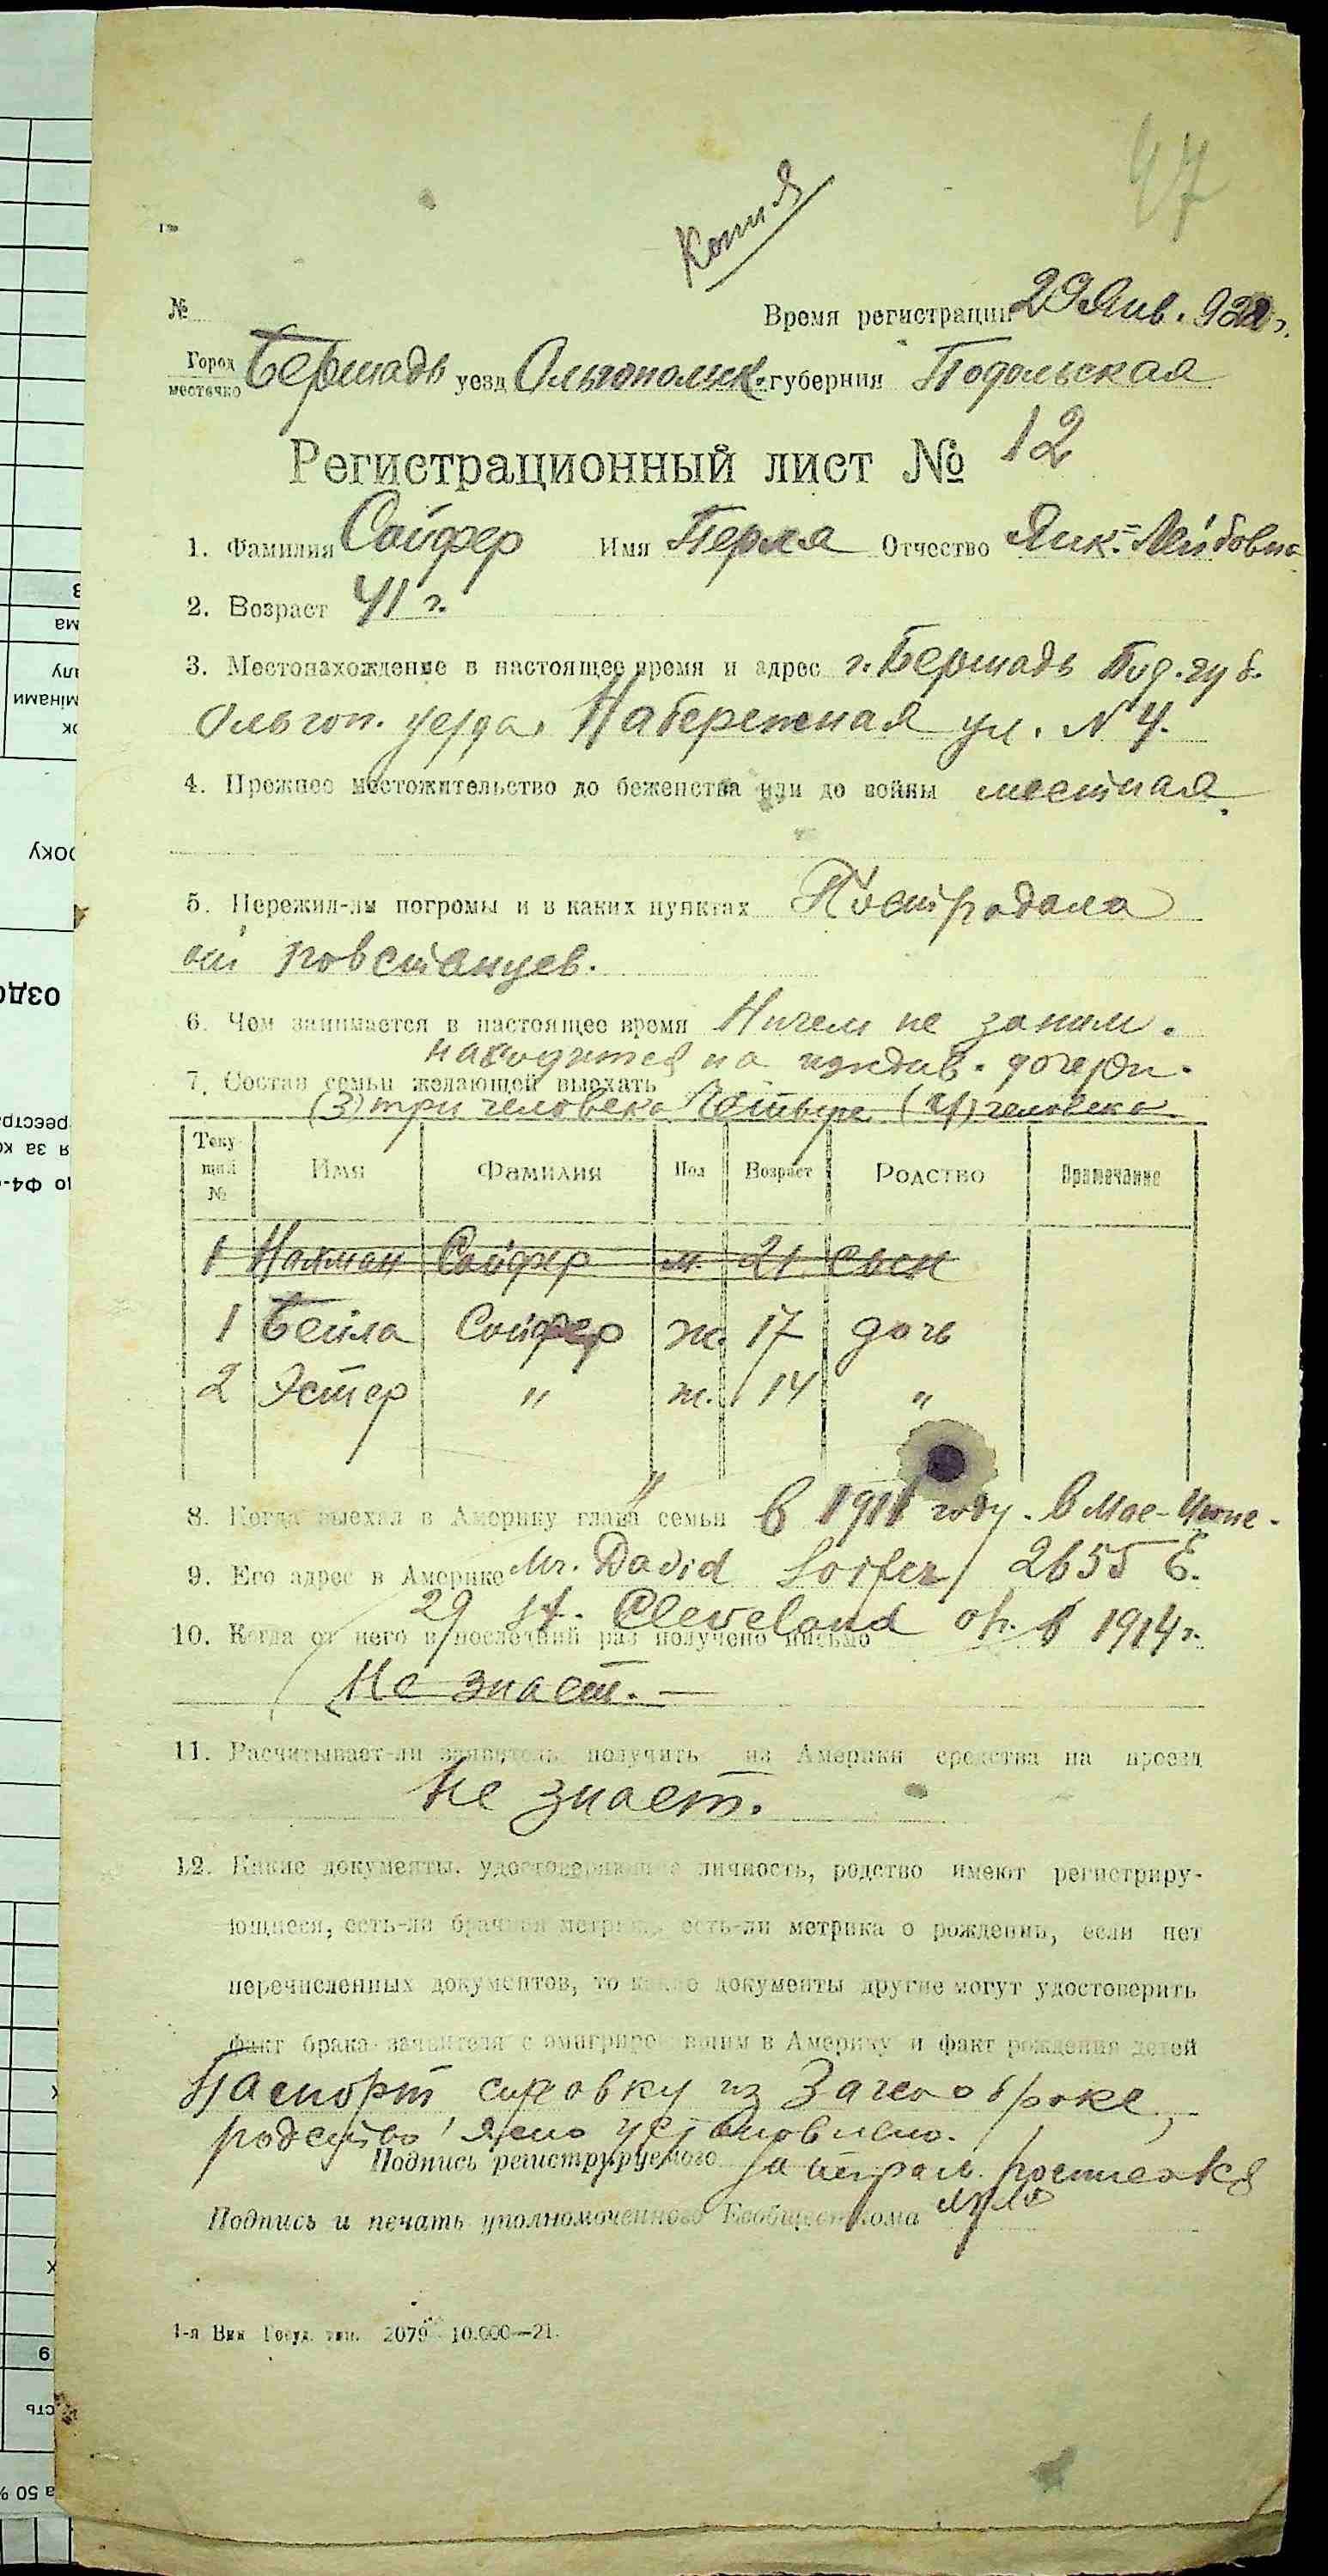 47
Копия
№
Время регистрации 29 Янв. 922 г.
Город
местечко Бершадь уезд Ольгопольск. губерния Подольская
Регистрационный лист № 12
1. Фамилия Сойфер Имя Перля Отчество Янк.=Лейбовна
2. Возраст 41 г.
3. Местонахождение в настоящее время и адрес г. Бершадь Под. губ.
Ольгоп. уезда, Набережная ул. N 4.
4. Прежнее местожительство до беженства или до войны местная.
5. Пережил-ли погромы и в каких пунктах Пострадала
от повстанцев.
6. Чем занимается в настоящее время Ничем не заним.
находится на иждив. дочери.
7. Состав семьи желающей выехать
(3) три человека Четыре (4) человека
Теку-
щий
№ Имя Фамилия Пол Возраст Родство Примечание
1 Нахман Сойфер м. 21 сын
1 Бейла Сойфер ж. 17 дочь
2 Эстер " ж. 14 "
8. Когда выехал в Америку глава семьи в 1911 году. в Мае-Июне.
9. Его адрес в Америке Mr. David Soifer / 2655 E.
29 St. Cleveland oh.
10. Когда от него в последний раз получено письмо в 1914 г.
Не знает.
11. Расчитывает-ли заявитель получить из Америки средства на проезд
Не знает.
12. Какие документы, удостоверяющие личность, родство имеют регистриру-
ющиеся, есть-ли брачная метрика, есть-ли метрика о рождении, если нет
перечисленных документов, то какие документы другие могут удостоверить
факт брака заявителя с эмигрировавшим в Америку и факт рождения детей
Паспорт справку из Загса о браке,
родство установлено.
Подпись регистрируемого
Подпись и печать уполномоченного Евобщесткома
1-я Вин Госуд. тип. 2079 10.000—21.
оздо
року
мінами
реєстра
я за ко
до Ф4-
9
сть
а 50 %